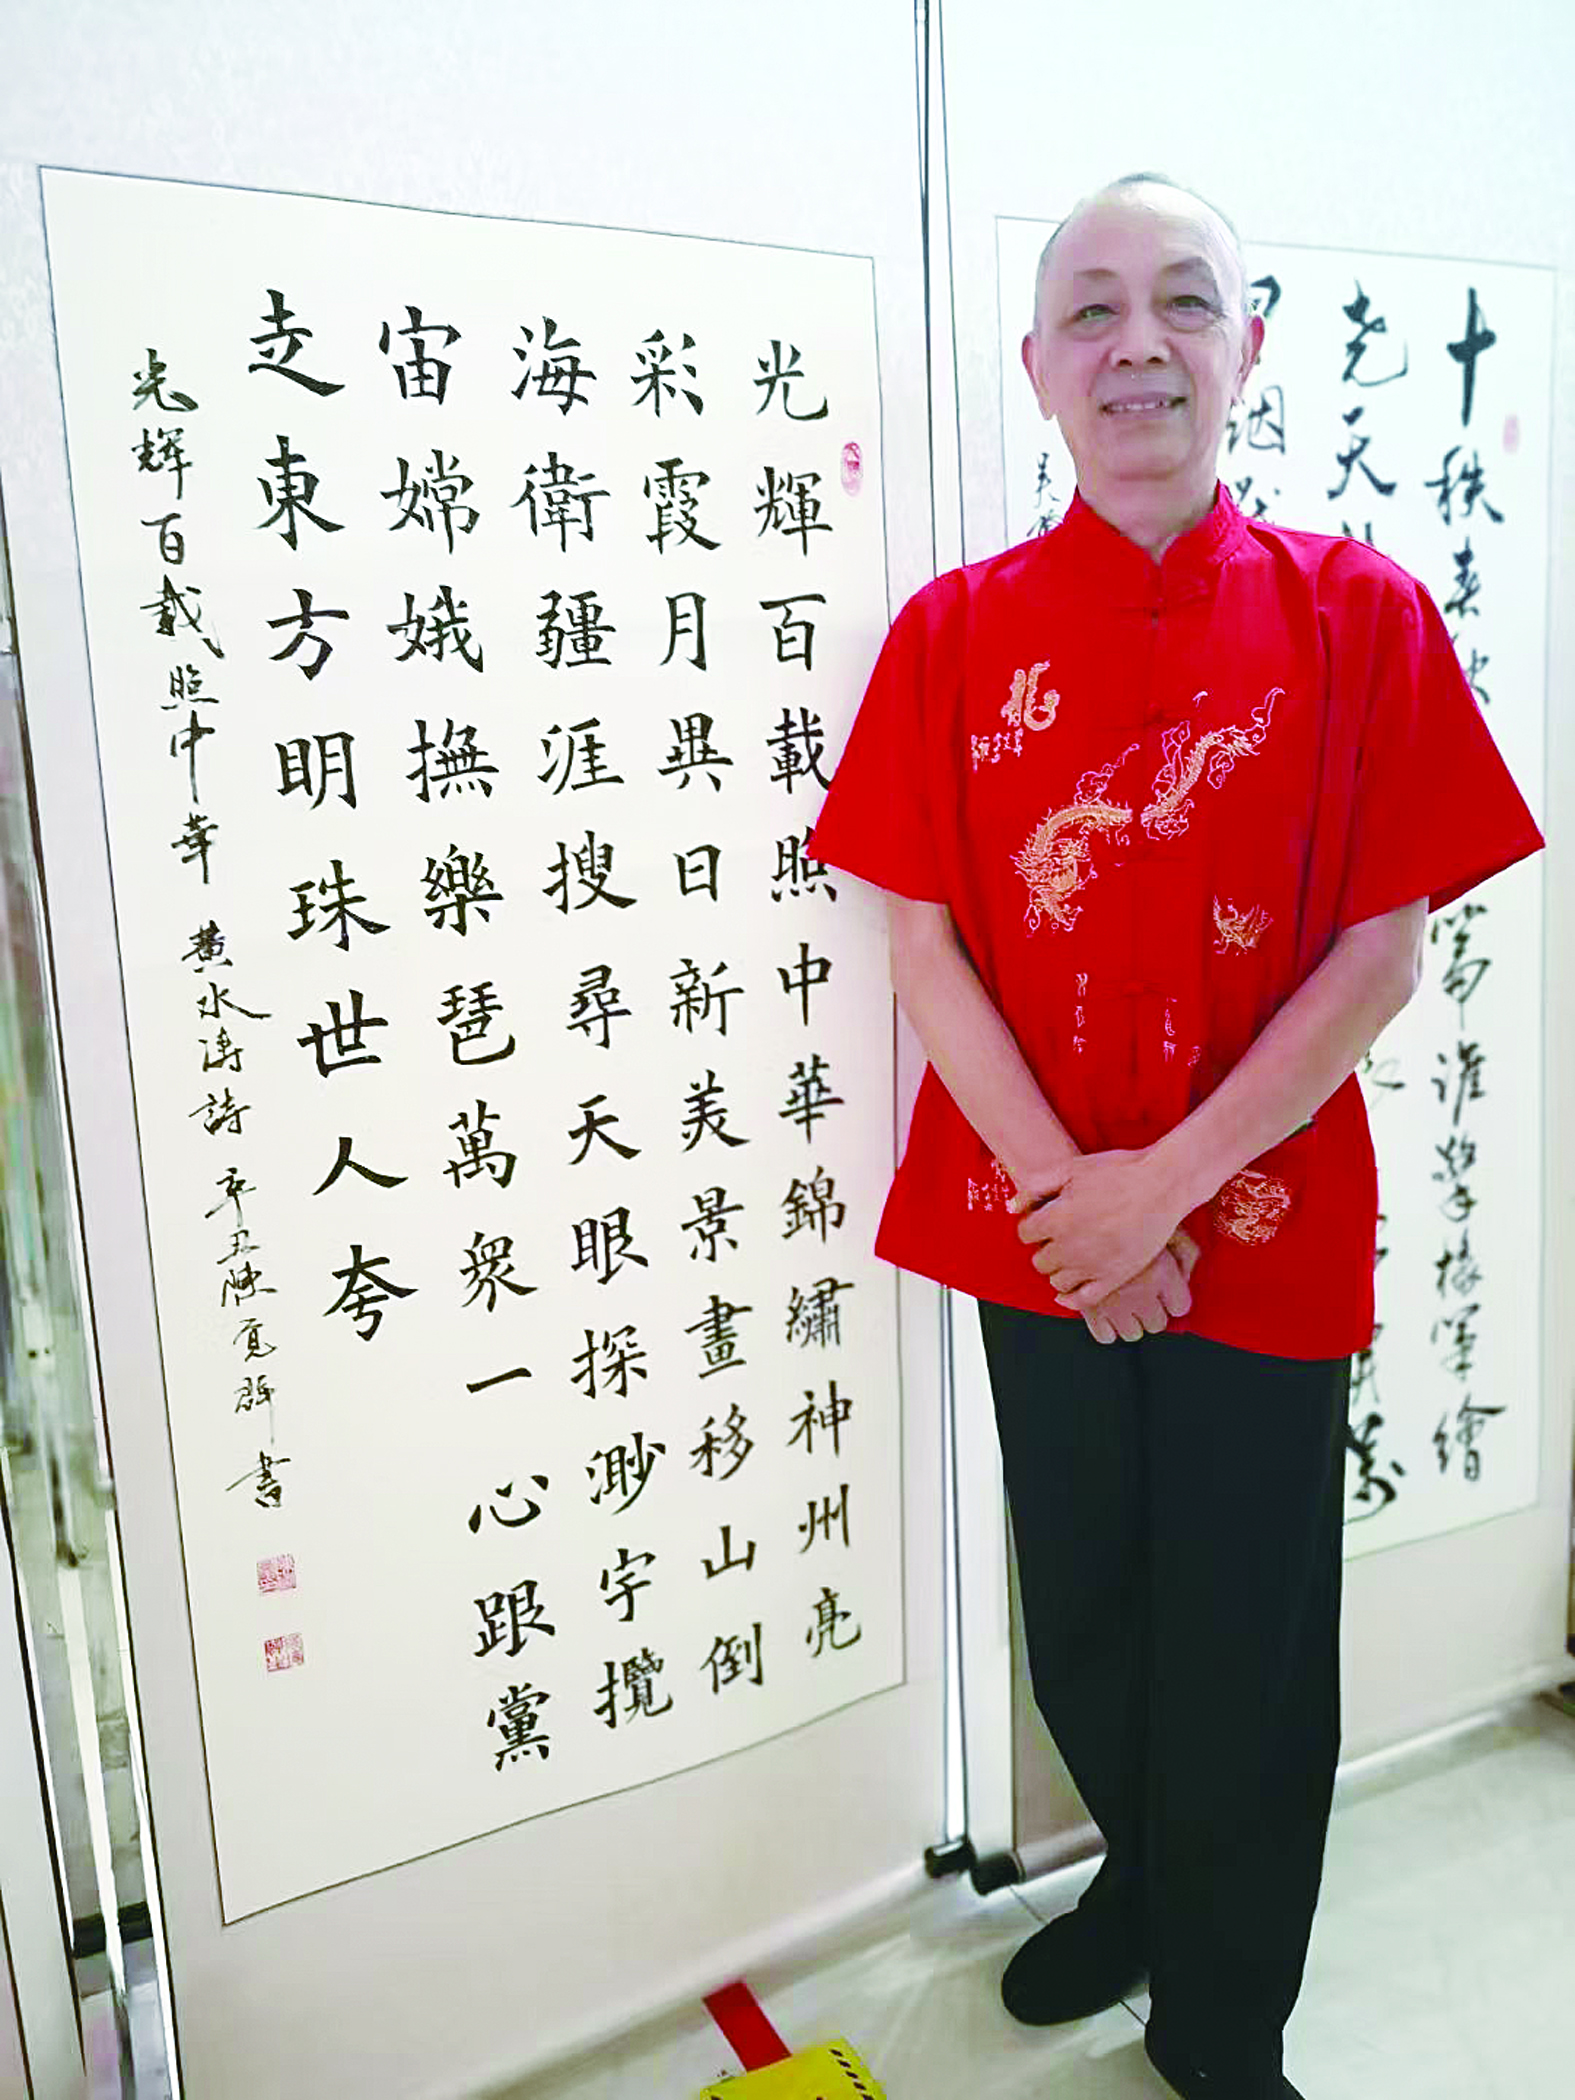 光輝百載照中華錦繡神州亮
彩霞月異日新美景畫移山倒
海衛疆涯搜尋天眼探渺宇攬
宙嫦娥撫樂琵萬眾一心跟黨
走東方明珠世人夸
光辉百载照中華 黄水涛詩 辛丑陳群書
十秩春秋篇誰擎椽筆繪
堯天
烟
龍